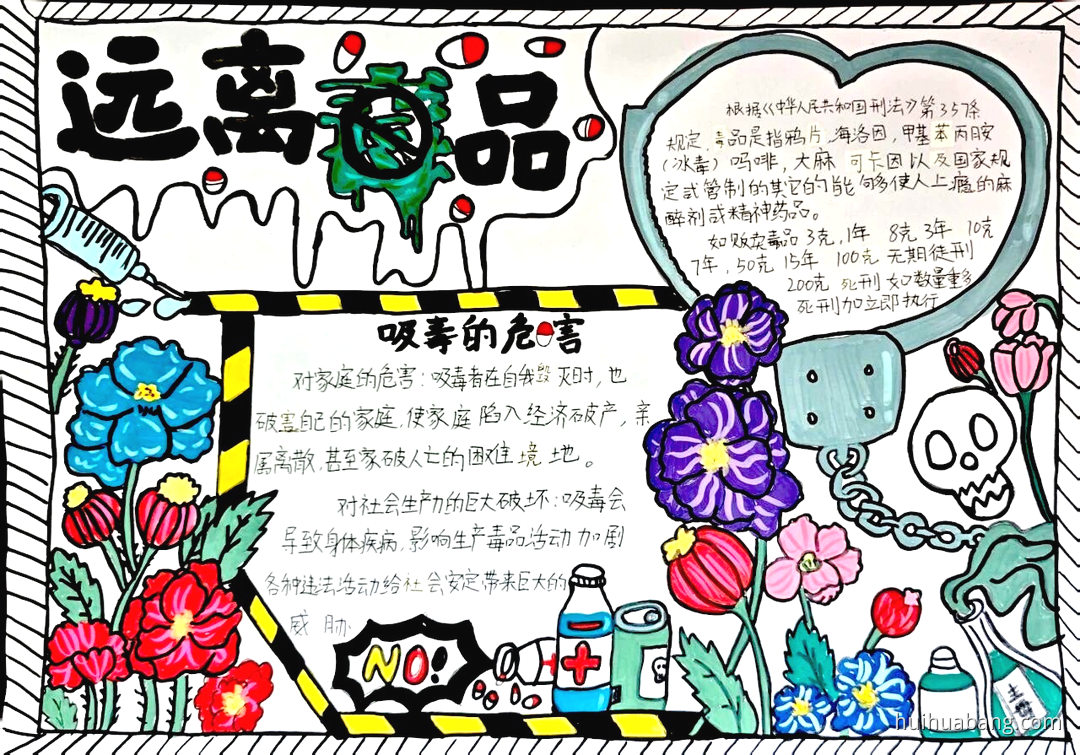 远离毒品
根据《中华人民共和国刑法》第357条
规定,毒品是指鸦片,海洛因,甲基苯丙胺
(冰毒)吗啡,大麻 可卡因以及国家规
定或管制的其它的能够使人上瘾的麻
醉剂或精神药品。
如贩卖毒品3克,1年 8克3年 10克
7年,50克 15年 100克 无期徒刑
200克 死刑 如数量重多
死刑加立即执行
吸毒的危害
对家庭的危害:吸毒者在自我毁灭时,也
破害自己的家庭,使家庭陷入经济破产,亲
属离散,甚至家破人亡的困难境地。
对社会生产力的巨大破坏:吸毒会
导致身体疾病,影响生产毒品活动加剧
各种违法活动给社会安定带来巨大的
威胁
NO!
huihuabang.com